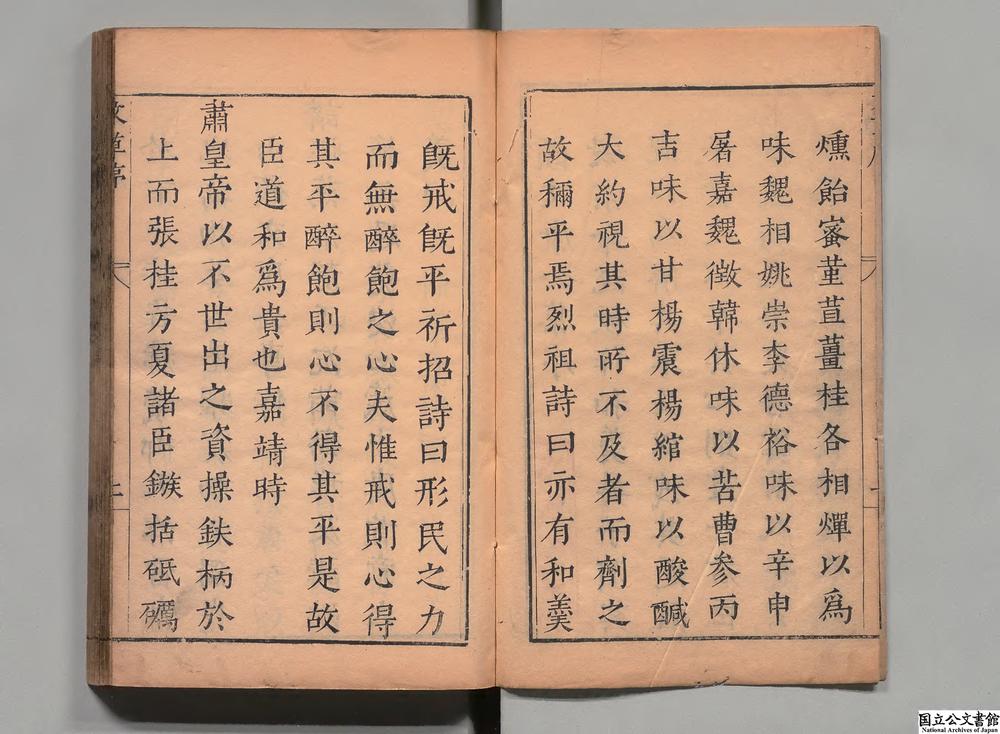 燻飴蜜菫荁薑桂各相燀以爲
味魏相姚崇李德裕味以辛申
屠嘉魏徵韓休味以苦曹參丙
吉味以甘楊震楊綰味以酸醎
大約視其時所不及者而劑之
故穪平焉烈祖詩曰亦有和羹
旣戒旣平祈招詩曰形民之力
而無醉飽之心夫惟戒則心得
其平醉飽則心不得其平是故
臣道和爲貴也嘉靖時
肅皇帝以不世出之資操鈇柄於
上而張桂方夏諸臣鏃括砥礪
國立公文書館
National Archives of Japan